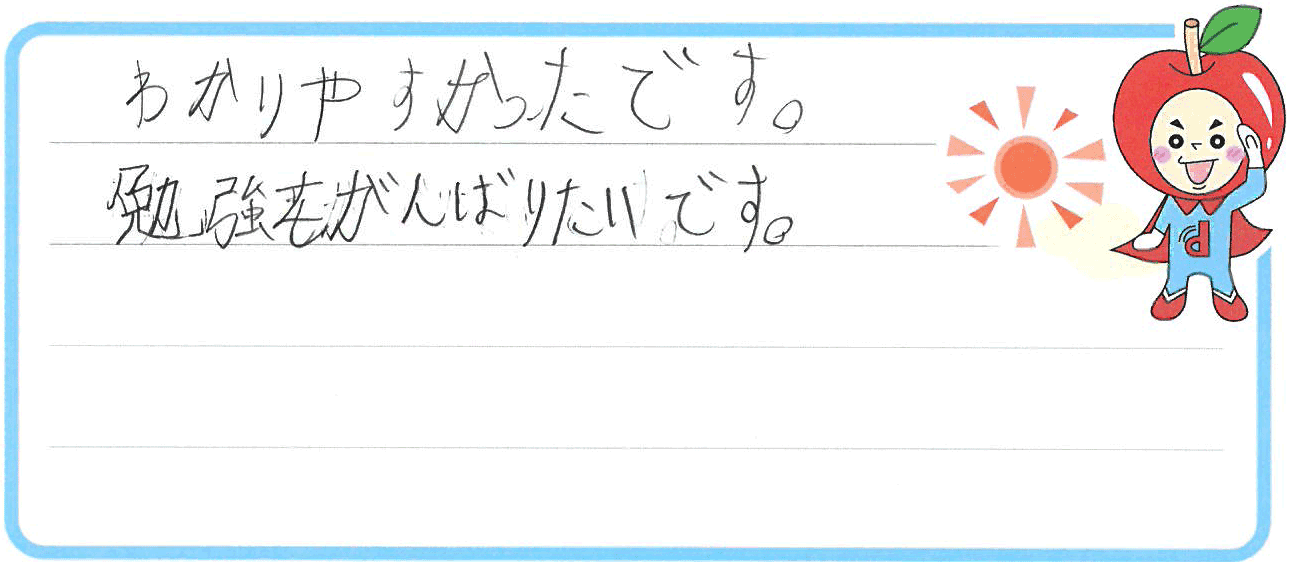 わかりやすかったです。
勉強をがんばりたいです。